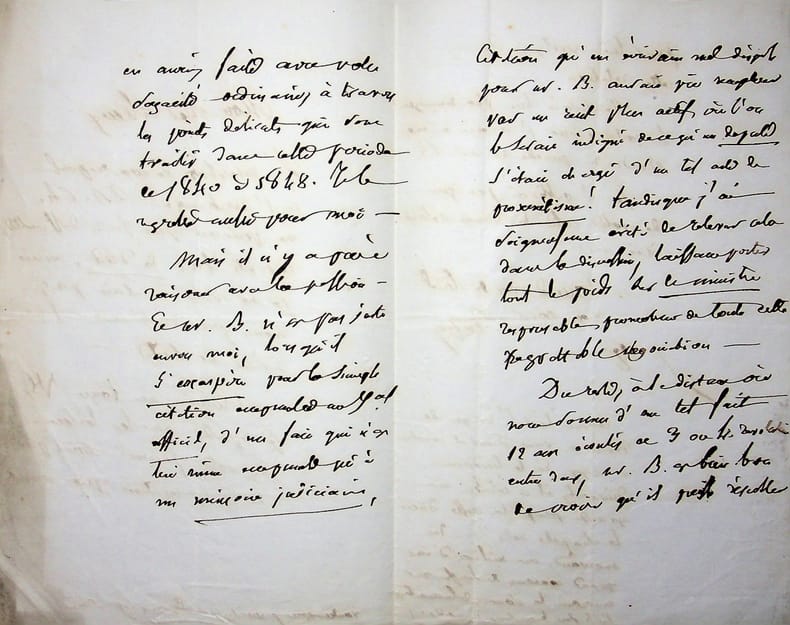 en auriez faite avec votre
sagacité ordinaire, à travers
les points délicats qui sont
traités dans cette période
de 1840 à 1848. Je le
regrette aussi pour moi —
Mais il n'y a guère
raisonner avec la passion —
Ce mr. B. n'est pas juste
envers moi, lorsqu'il
s'exaspère pour la simple
citation empruntée au
officiel, d'un fait qui n'est
lui même emprunté qu'à
un mémoire judiciaire,
Citation qu'un écrivain mal disposé
pour mr. B. aurait pu remplacer
par un récit plus actif où l'on
se serait indigné de ce qu'un député
s'était chargé d'un tel acte de
proxénétisme! tandis que j'ai
soigneusement évité de relever cela
dans la discussion, laissant porter
tout le poids sur le ministre
responsable, promoteur de toute cette
regrettable négociation —
Du reste, à la distance où
nous sommes d'un tel fait
12 ans écoulés et 3 ou 4 révolutions
entre deux, mr. B. est bien bon
de croire qu'il